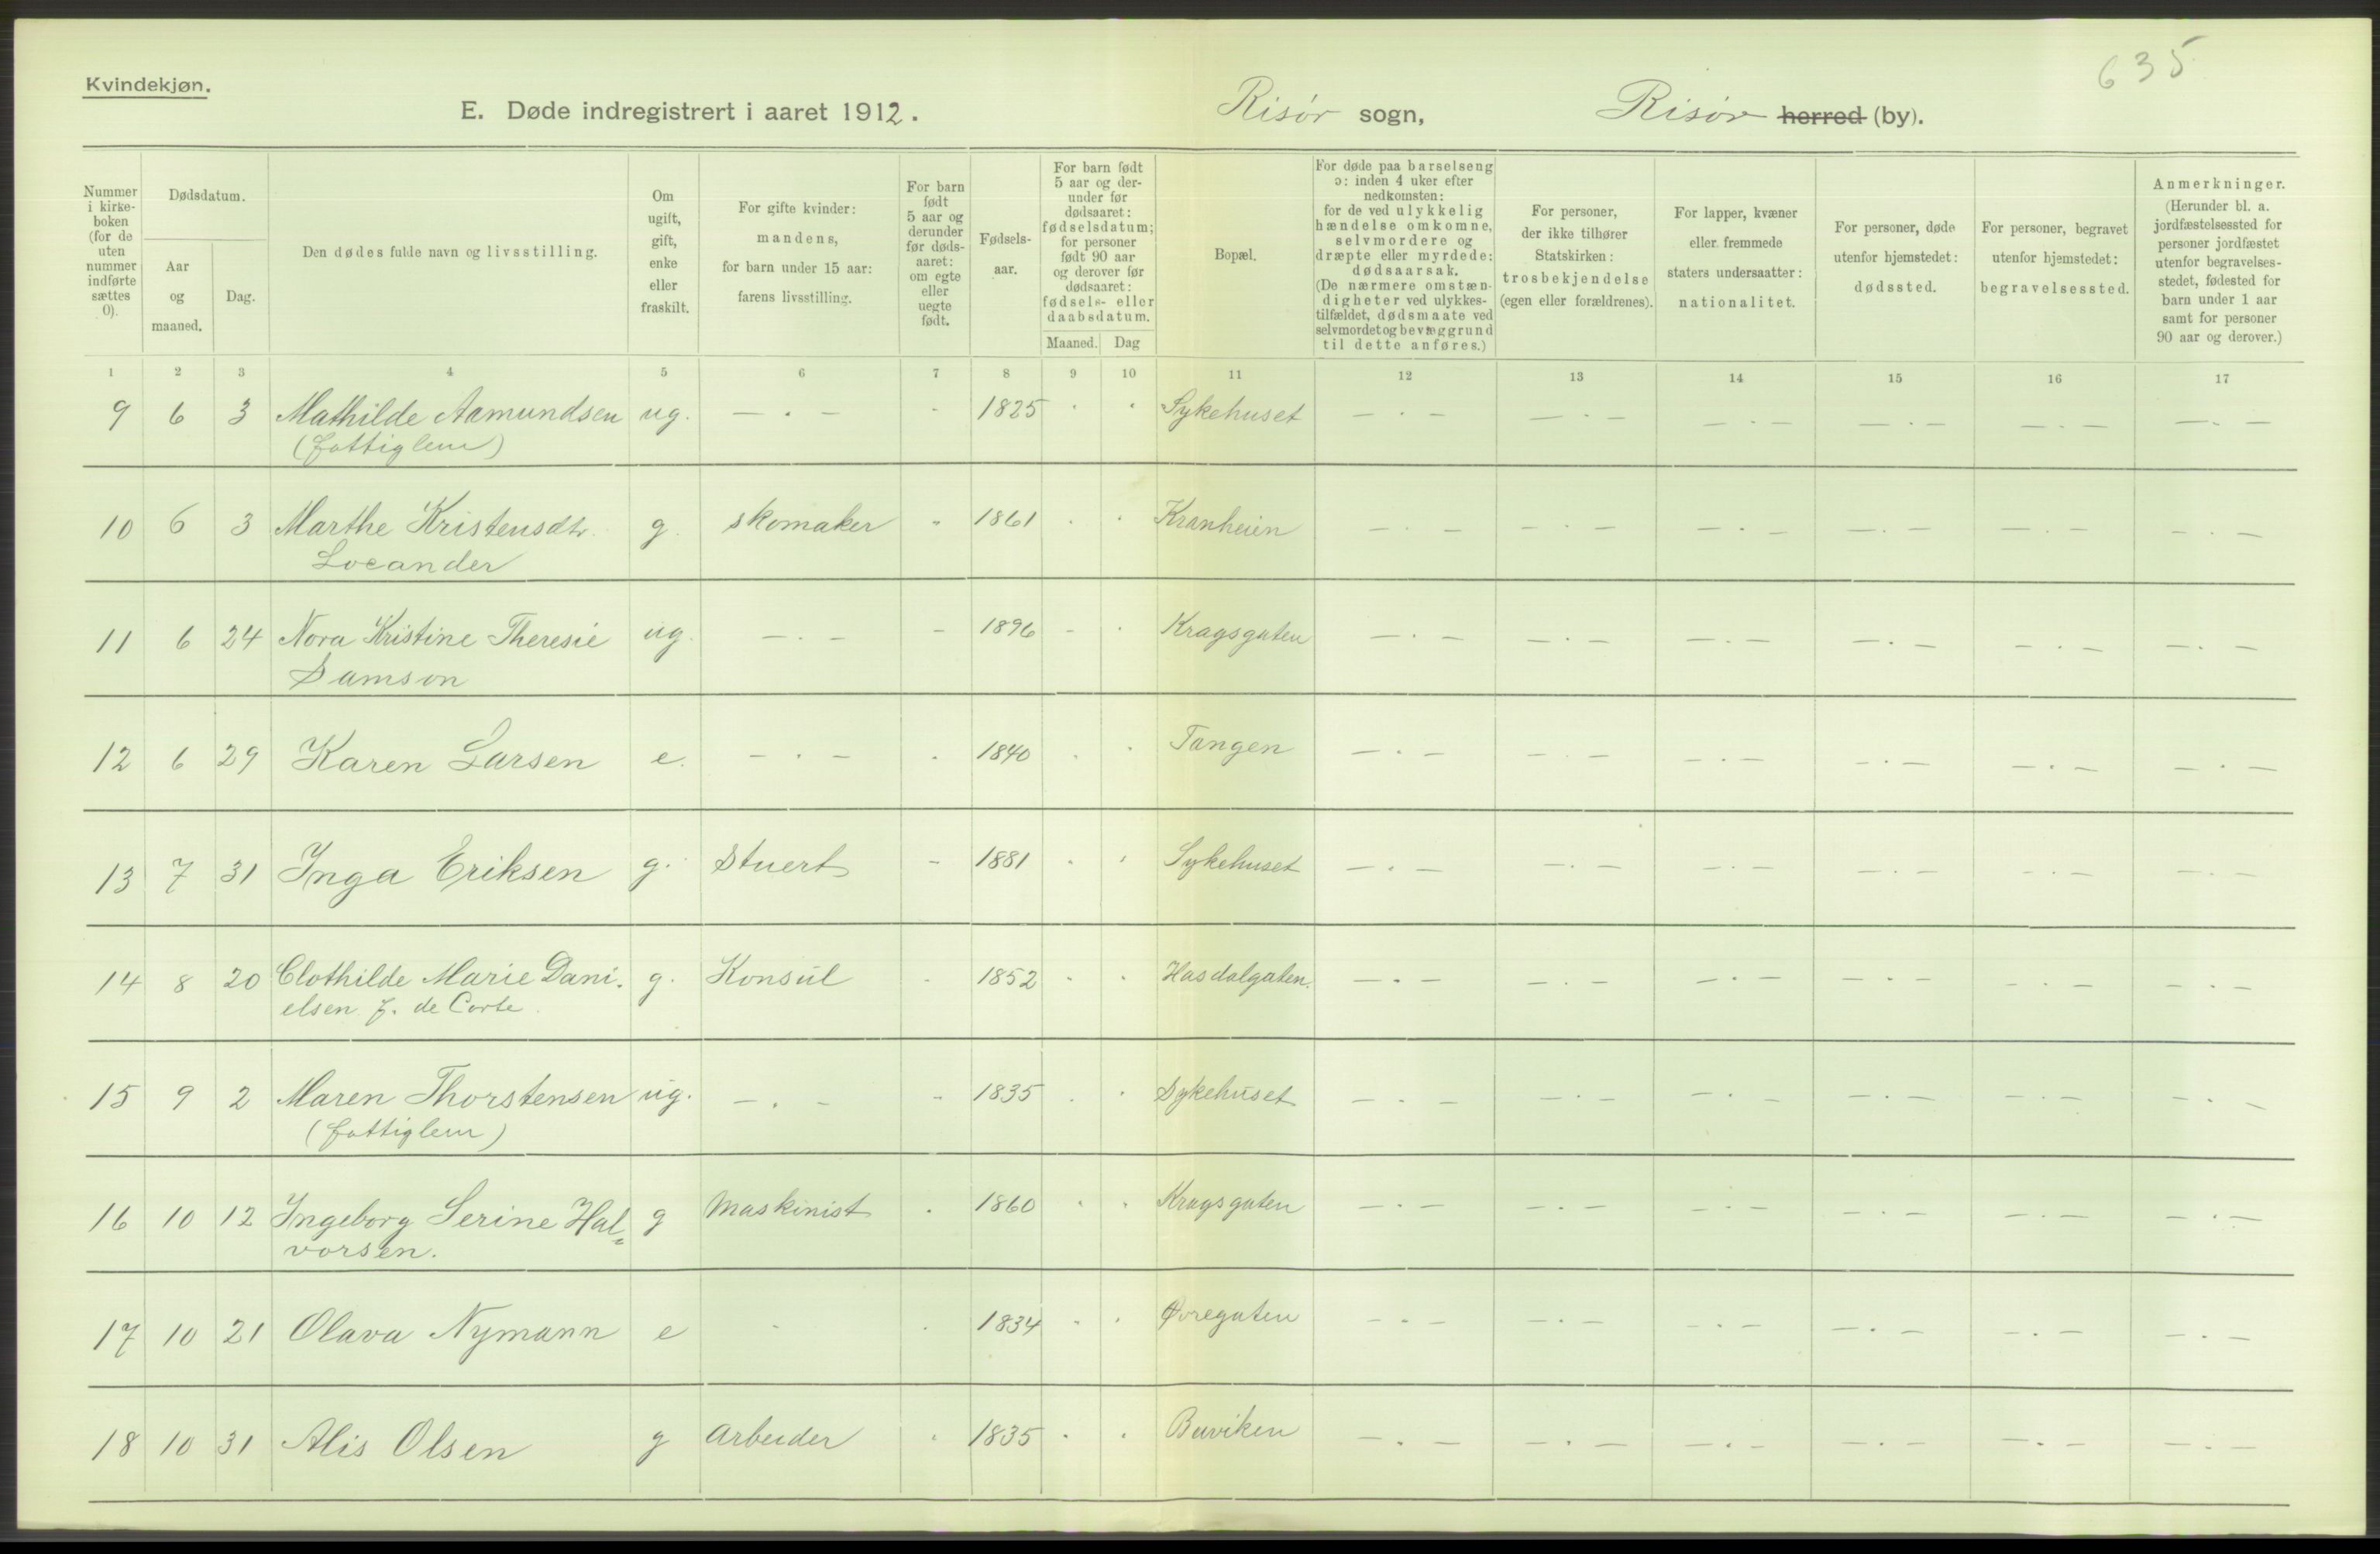 635
Kvindekjøn.
E. Døde indregistrert i aaret 1912. Risør sogn, Risør herred (by).
Nummer i kirke-boken (for de uten nummer indførte sættes 0).
Dødsdatum.
Aar og maaned.
Dag.
Den dødes fulde navn og livsstilling.
Om ugift, gift, enke eller fraskilt.
For gifte kvinder: mandens, for barn under 15 aar: farens livsstilling.
For barn født 5 aar og derunder før døds-aaret: om egte eller uegte født.
Fødsels-aar.
For barn født 5 aar og der-under før dødsaaret: fødselsdatum; for personer født 90 aar og derover før dødsaaret: fødsels- eller daabsdatum.
Maaned. Dag
Bopæl.
For døde paa barselseng ɔ: inden 4 uker efter nedkomsten: for de ved ulykkelig hændelse omkomne, selvmordere og dræpte eller myrdede: dødsaarsak. (De nærmere omstæn-digheter ved ulykkes-tilfældet, dødsmaate ved selvmordet og bevæggrund til dette anføres.)
For personer, der ikke tilhører Statskirken: trosbekjendelse (egen eller forældrenes).
For lapper, kvæner eller fremmede staters undersaatter: nationalitet.
For personer, døde utenfor hjemstedet: dødssted.
For personer, begravet utenfor hjemstedet: begravelsessted.
Anmerkninger. (Herunder bl. a. jordfæstelsessted for personer jordfæstet utenfor begravelses-stedet, fødested for barn under 1 aar samt for personer 90 aar og derover.)
1 2 3 4 5 6 7 8 9 10 11 12 13 14 15 16 17
9 6 3 Mathilde Aamundsen ug. — . — - 1825 . . Sykehuset — . — — . — — . — — . — — . — — . —
(fattiglem)
10 6 3 Marthe Kristensdtr. g. skomaker - 1861 . . Kranheien — . — — . — — . — — . — — . — — . —
Locander
11 6 24 Nora Kristine Theresie ug. — . — - 1896 - . Kragsgaten — . — — . — — . — — . — — . — — . —
Samson
12 6 29 Karen Larsen e. — . — . 1840 . . Tangen — . — — . — — . — — . — — . — — . —
13 7 31 Inga Eriksen g. Stuert - 1881 . . Sykehuset — . — — . — — . — — . — — . — — . —
14 8 20 Clothilde Marie Dani- g. Konsul - 1852 . . Hasdalgaten. — . — — . — — . — — . — — . — — . —
elsen f. de Corte.
15 9 2 Maren Thorstensen ug. — . — - 1835 . . Sykehuset — . — — . — — . — — . — — . — — . —
(fattiglem)
16 10 12 Ingeborg Serine Hal= g Maskinist . 1860 . . Kragsgaten — . — — . — — . — — . — — . — — . —
vorsen.
17 10 21 Olava Nymann e - . 1834 . . Øvregaten — . — — . — — . — — . — — . — — . —
18 10 31 Alis Olsen g Arbeider . 1835 . . Buviken — . — — . — — . — — . — — . — — . —